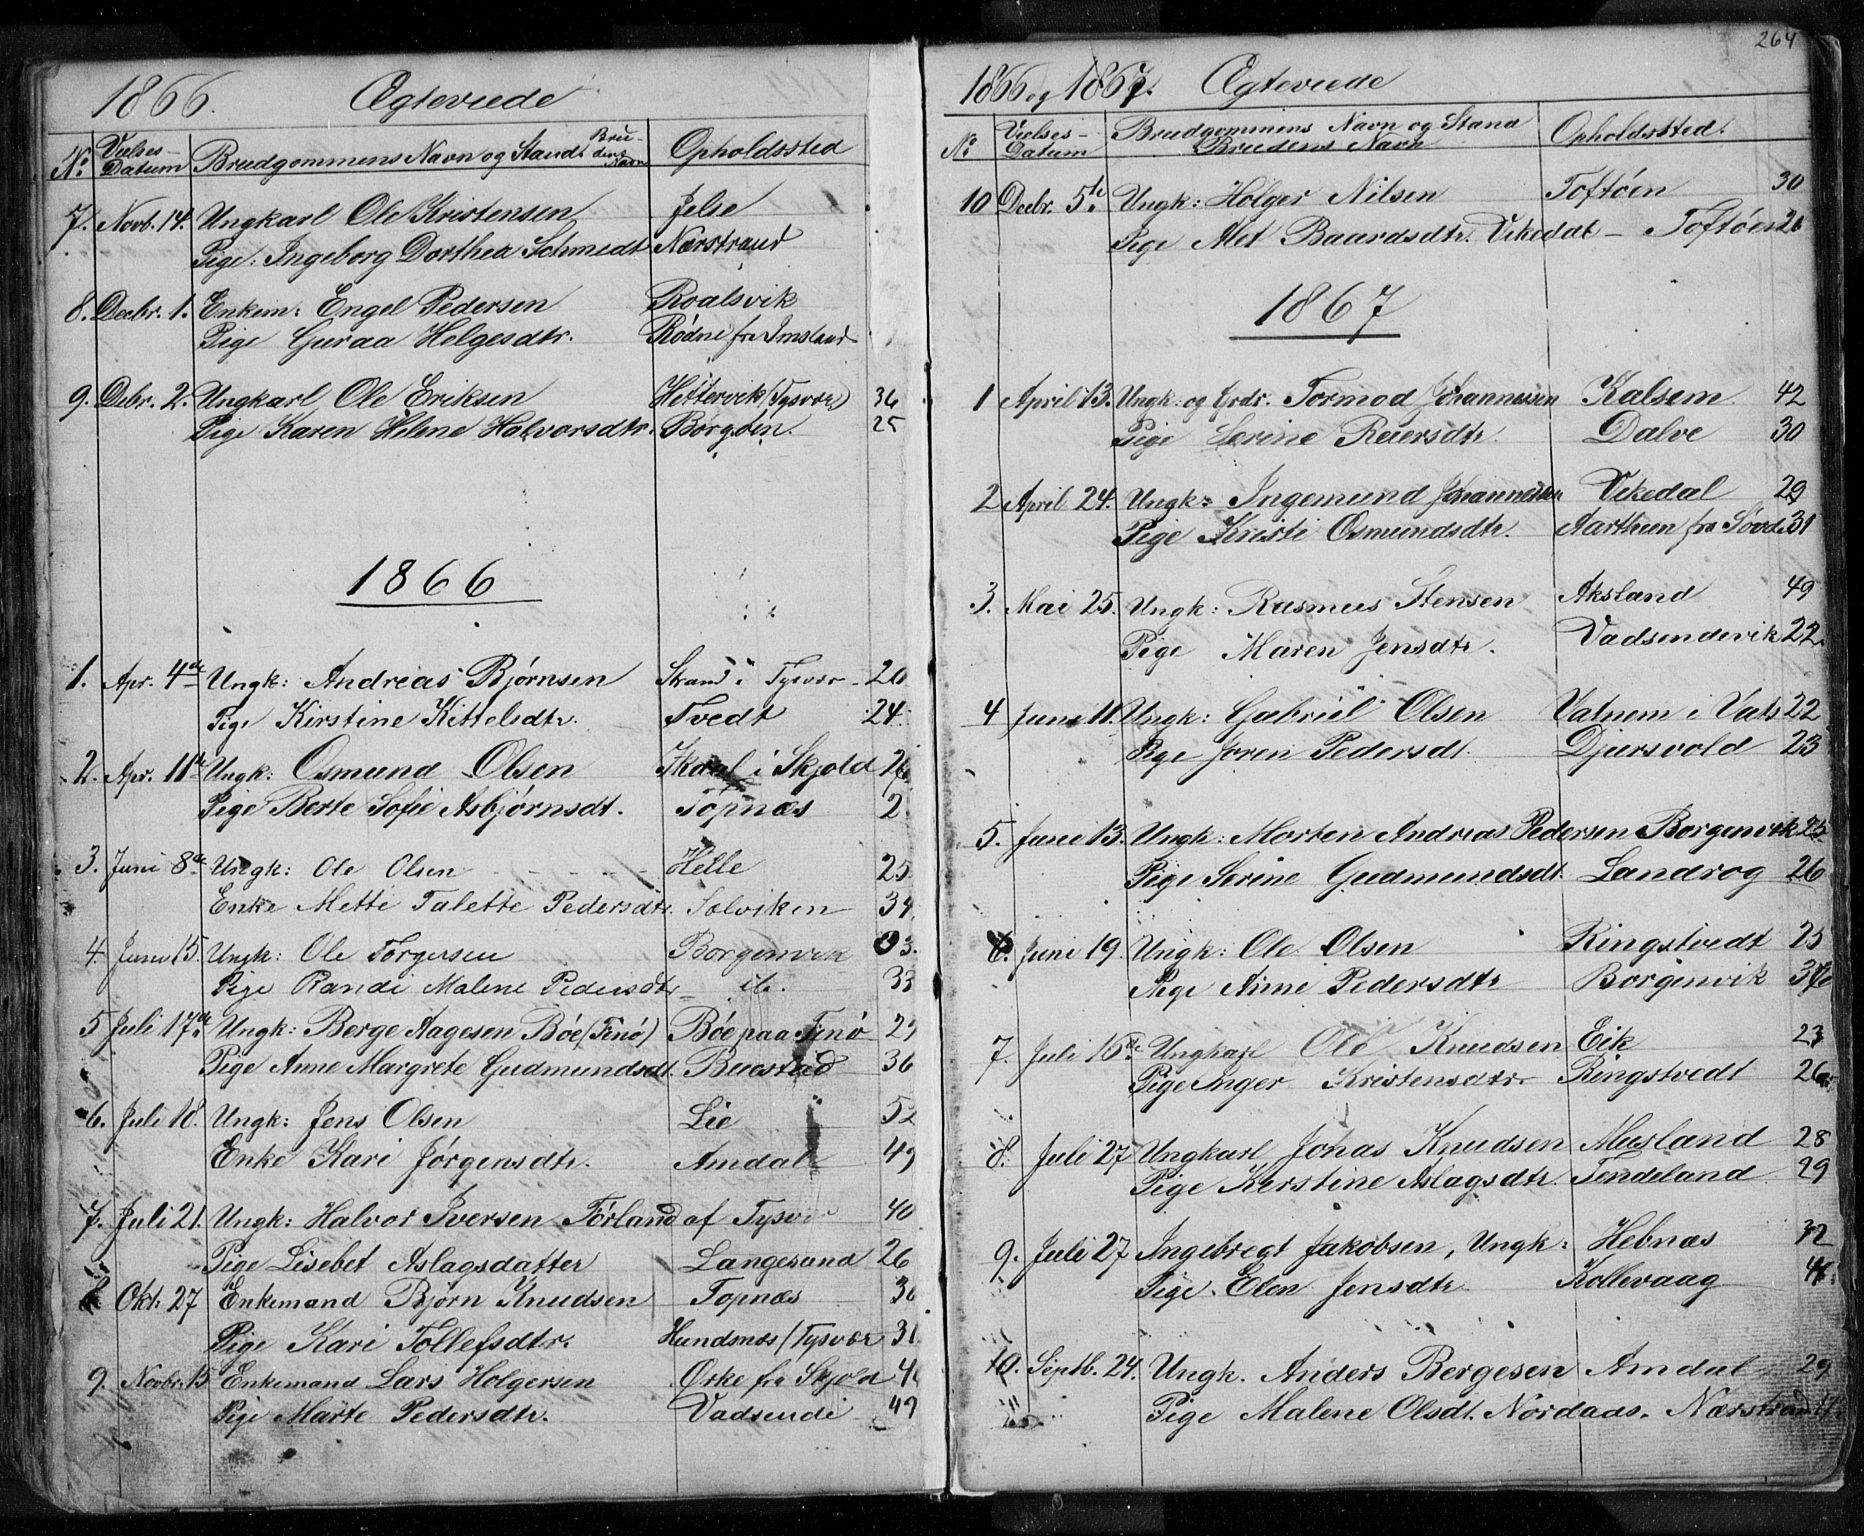 1866. Ægteviede
No. Vielses-Datum Brudgommens Navn og Stand. Brudens Navn Opholdssted
7. Novb. 14. Ungkarl Ole Kristensen Jelse
Pige: Ingeborg Dorthea Schmedt Nærstrand
8. Decbr. 1. Enkem: Engel Pedersen Roalsvik
Pige Guraa Helgesdtr. Rødne fra Imsland
9. Debr. 2. Ungkarl Ole Eriksen Hettervik (Tysvær) 36
Pige Karen Helene Halvorsdtr. Borgøen. 25
1866
1. Apr. 4de Ungk: Andreas Bjørnsen Strand i Tysvær 26
Pige Kirstine Kittelsdtr. Tvedt 24
2. Apr. 11te Ungk: Osmund Olsen i Skjold 26
Pige Berte Sofie Asbjørnsdt. Topnæs 2
3. Juni 8de Ungk: Ole Olsen Helle 25
Enke Mette Talette Pedersdtr. Solviken 34
4. Juni 15. Ungk: Ole Torgersen Borgenvik 33.
Pige Randi Malene Pedersdtr. it. 33
5 Juli 17de Ungk: Berge Aagesen Bøe (Finø) Bøe paa Finø 29
Pige Anne Margrete Gudmundsdt. Buestad 36
6. Juli 18. Ungk: Jens Olsen Lie 52
Enke Kari Jørgensdtr. Amdal 49
7. Juli 21. Ungk: Halvor Iversen Førland af Tysvær 40
Pige Lisebet Aslagsdatter Langesand 26
8 Okt. 27 Enkemand Bjørn Knudsen Topnæs 30
Pige Kari Tollefsdtr. Hundsnæs (Tysvær 31
9. Novbr. 15 Enkemand Lars Holgersen Ørke fra Skjold 4
Pige Marte Pedersdtr. Vadsendi 49
264
1866 og 1867. Ægteviede
No Vielses-Datum Brudgommens Navn og Stand Brudens Navn Opholdssted.
10 Decbr. 5te Ungk: Holger Nilsen Toftøen 30
Pige Alet Baardsdtr. Vikedal - Toftøen 26
1867
1 April 13. Ungk: og Grdr. Tormod Johannessen Kalsem 42
Pige Serine Reiersdtr. Dalve 30
2 April 24. Ungk: Ingemund Johannessen Vikedal 29
Pige Kristi Osmundsdtr. Aarthun fra Søvde 31
3. Mai 25. Ungk: Rasmus Stensen Aksland 49
Pige Maren Jensdtr. Vadsendevik 22.
4 Juni 11. Ungk: Gabriel Olsen Vatnem i Vats 22
Pige Joren Pedersdt. Djursvold 23
5. Juni 13. Ungk: Morten Andreas Pedersen Borgenvik 25
Pige Serine Gudmundsdt. Landrog 26
6. Juni 19. Ungk: Ole Olsen Ringstvedt 25
Pige Anne Pedersdtr Borgenvik
7. Juli 16de Ungkarl Ole Knudsen Eik 23
Pige Inger Kristensdtr. Ringstvedt 26
8. Juli 27 Ungkarl Jonas Knudsen Musland 28
Pige Kirstine Aslagsdtr. Tendeland 29
9. Juli 27 Ingebregt Jakobsen, Ungk: Hebnæs 32
Pige. Elen Jensdtr. Kollevaag
10. Septb. 24. Ungk. Anders Bergesen Amdal 29
Pige Malene Olsdt. Nordaas. Nærstrand